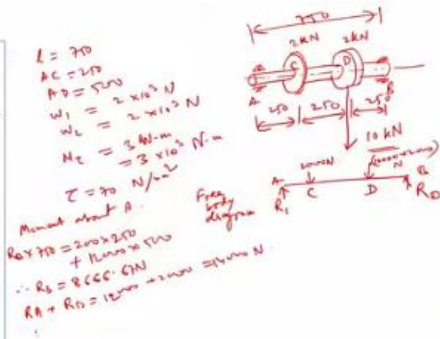 L = 750
AC = 250
AD = 500
W₁ = 2 × 10³ N
W₂ = 2 × 10³ N
= 3 × 10³ N-m
τ = 70 N/mm²
Moment about A
× 750 = 2000 × 250
+ 12000 × 500
∴ R_B = 8666.67 N
R_A + R_B = 12000 + 2000 = 14000 N
750
2KN 2KN
C D
A B
250 250 250
10 KN
Free body diagram
2000N
N
A C D B
R₁